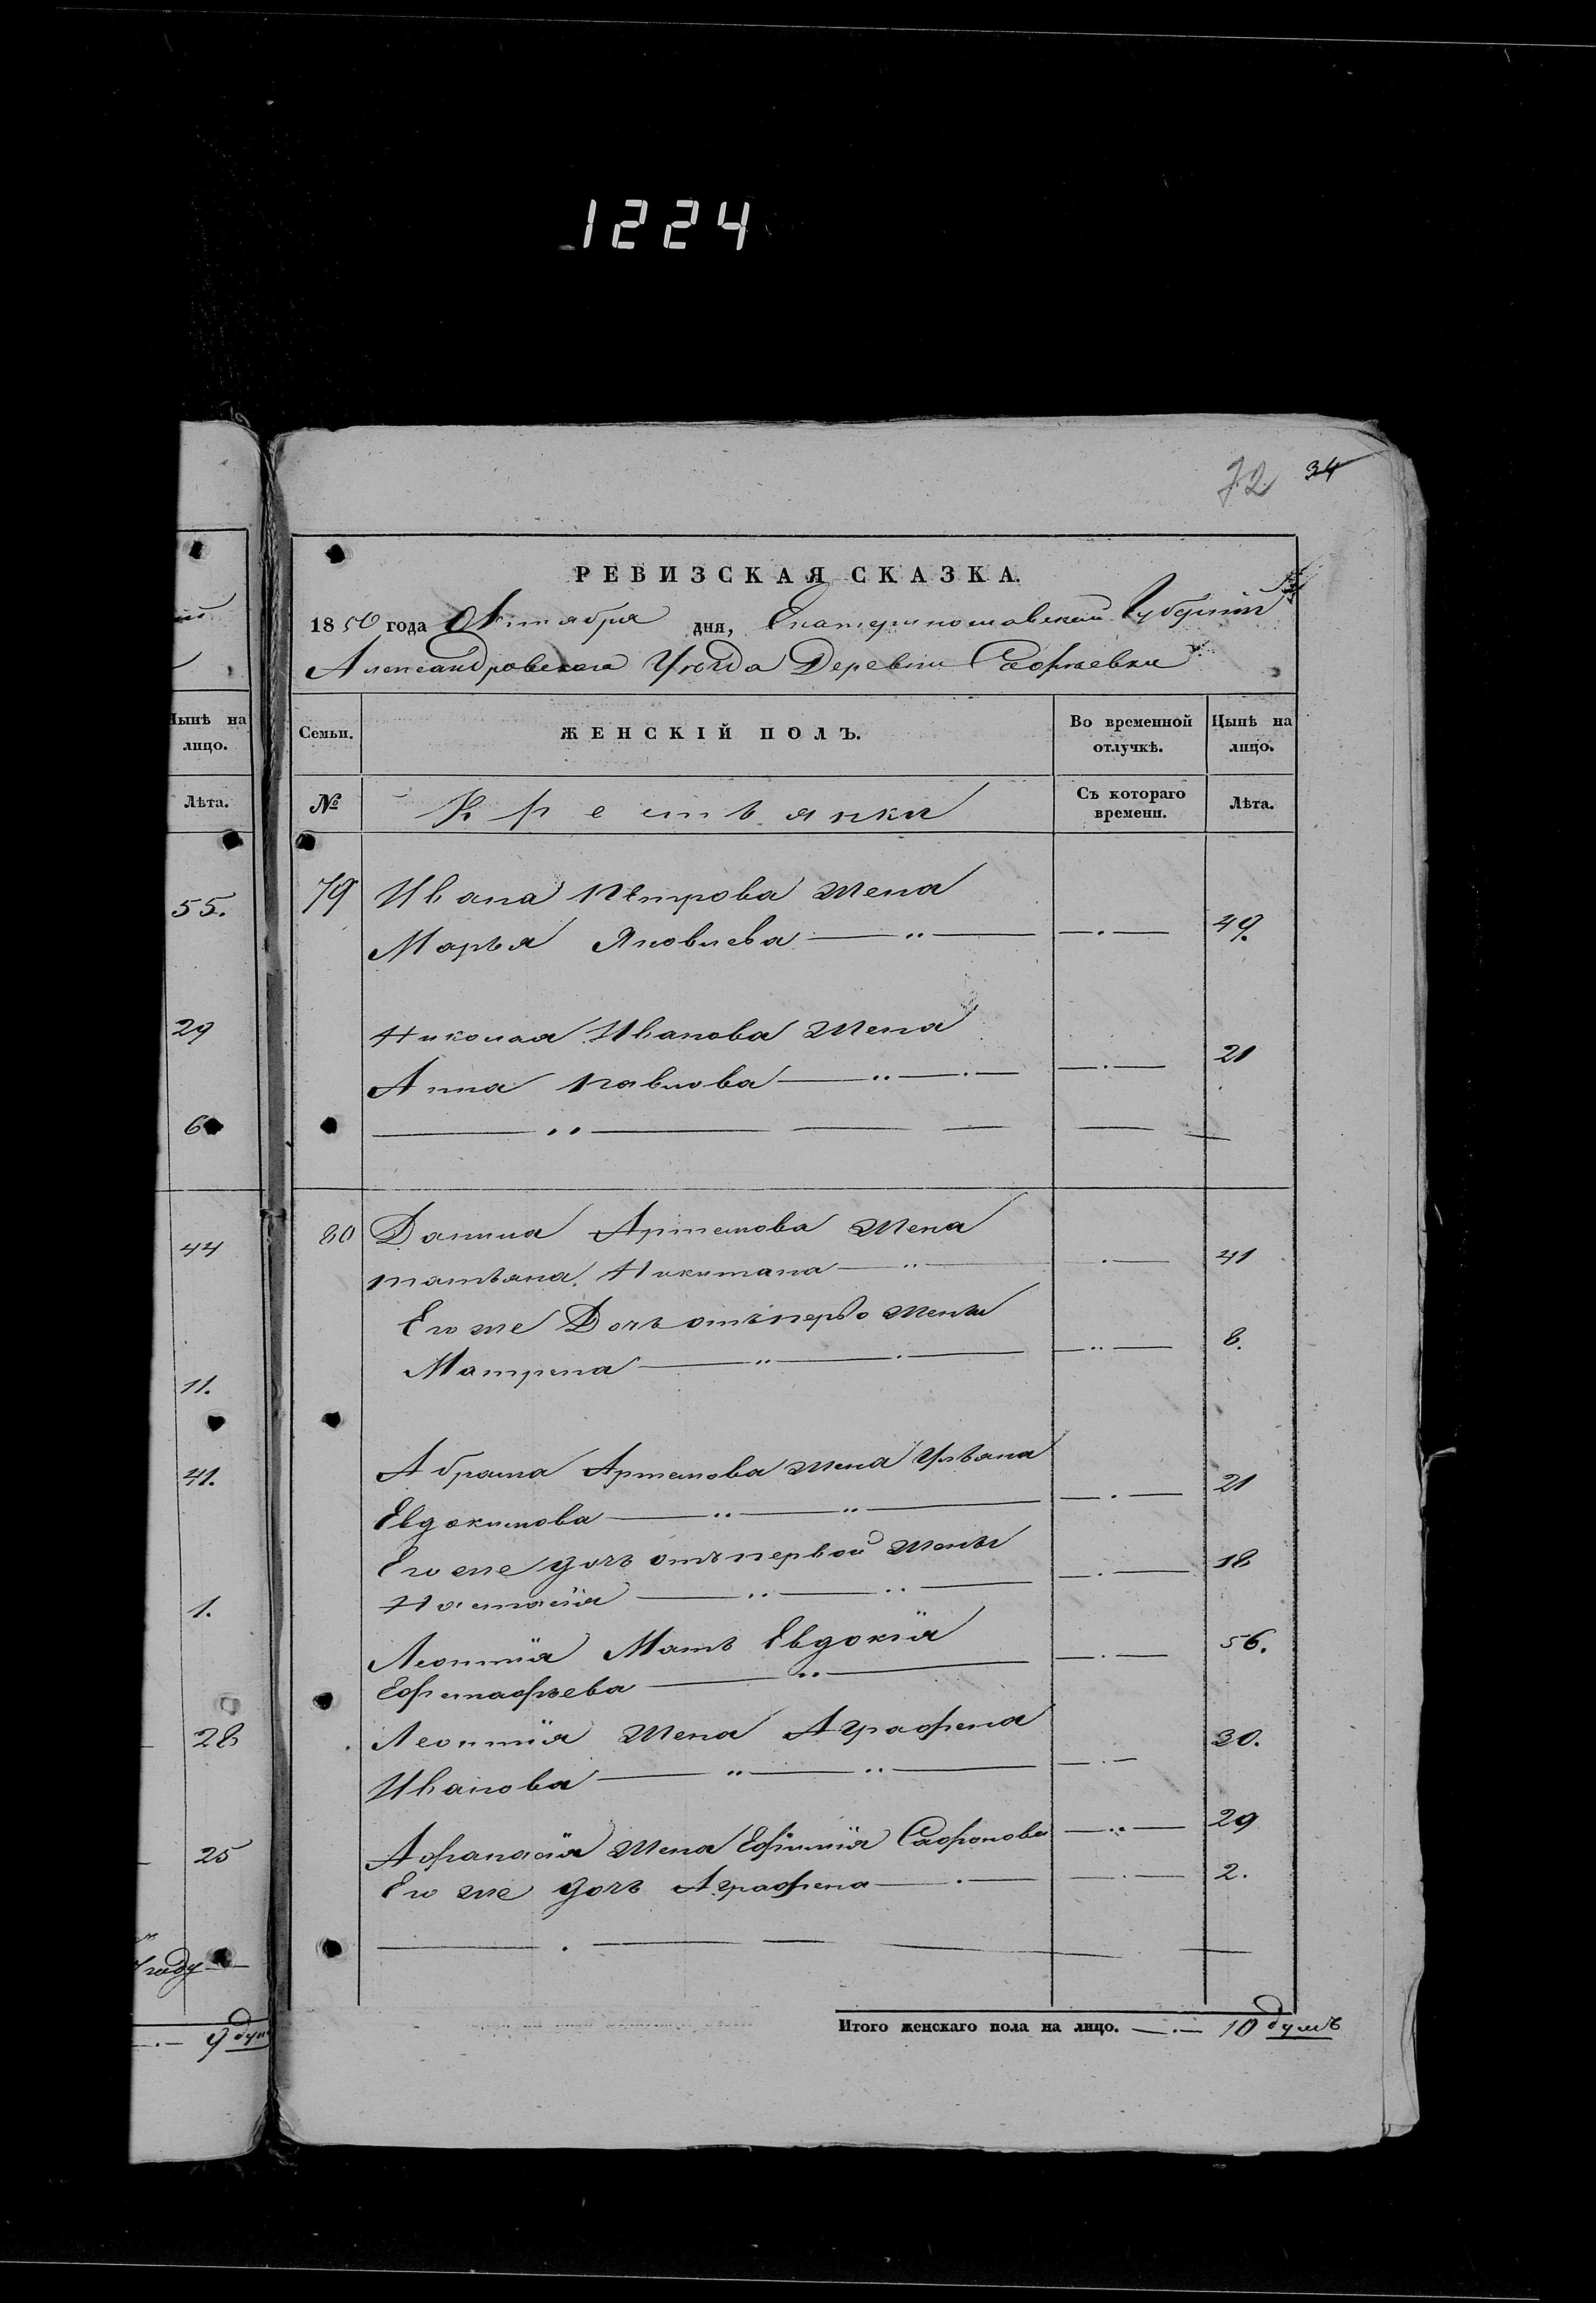 1224
72 34
РЕВИЗСКАЯ СКАЗКА.
1850 года Октября дня, Екатеринославской Губерніи
Александровскаго Уѣзда Деревни Софіевки
Нынѣ на
лицо.
Лѣта.
55.
29
6
44
11.
41.
1.
28
25
году
9 душ
Семьи. ЖЕНСКІЙ ПОЛЪ. Во временной отлучкѣ. Нынѣ на лицо.
№ Крестьянки Съ котораго времени. Лѣта.
79 Ивана Петрова жена
Марья Яковлева 49.
Николая Иванова жена
Анна Павлова 21
80 Данила Артемова жена
Татьяна Никитана 41
Его же Дочь отъ перво жены
Матрена 8.
Абрама Артемова жена Ульяна
Евдокимова 21
Его же дочь отъ первой жены 18
Настасія
Леонтія Мать Евдокія 56.
Ефстафьева
Леонтія жена Аграфена 30.
Иванова
Афанасія жена Ефимія Сафонова 29
Его же дочь Аграфена 2.
Итого женскаго пола на лицо. 10 душъ